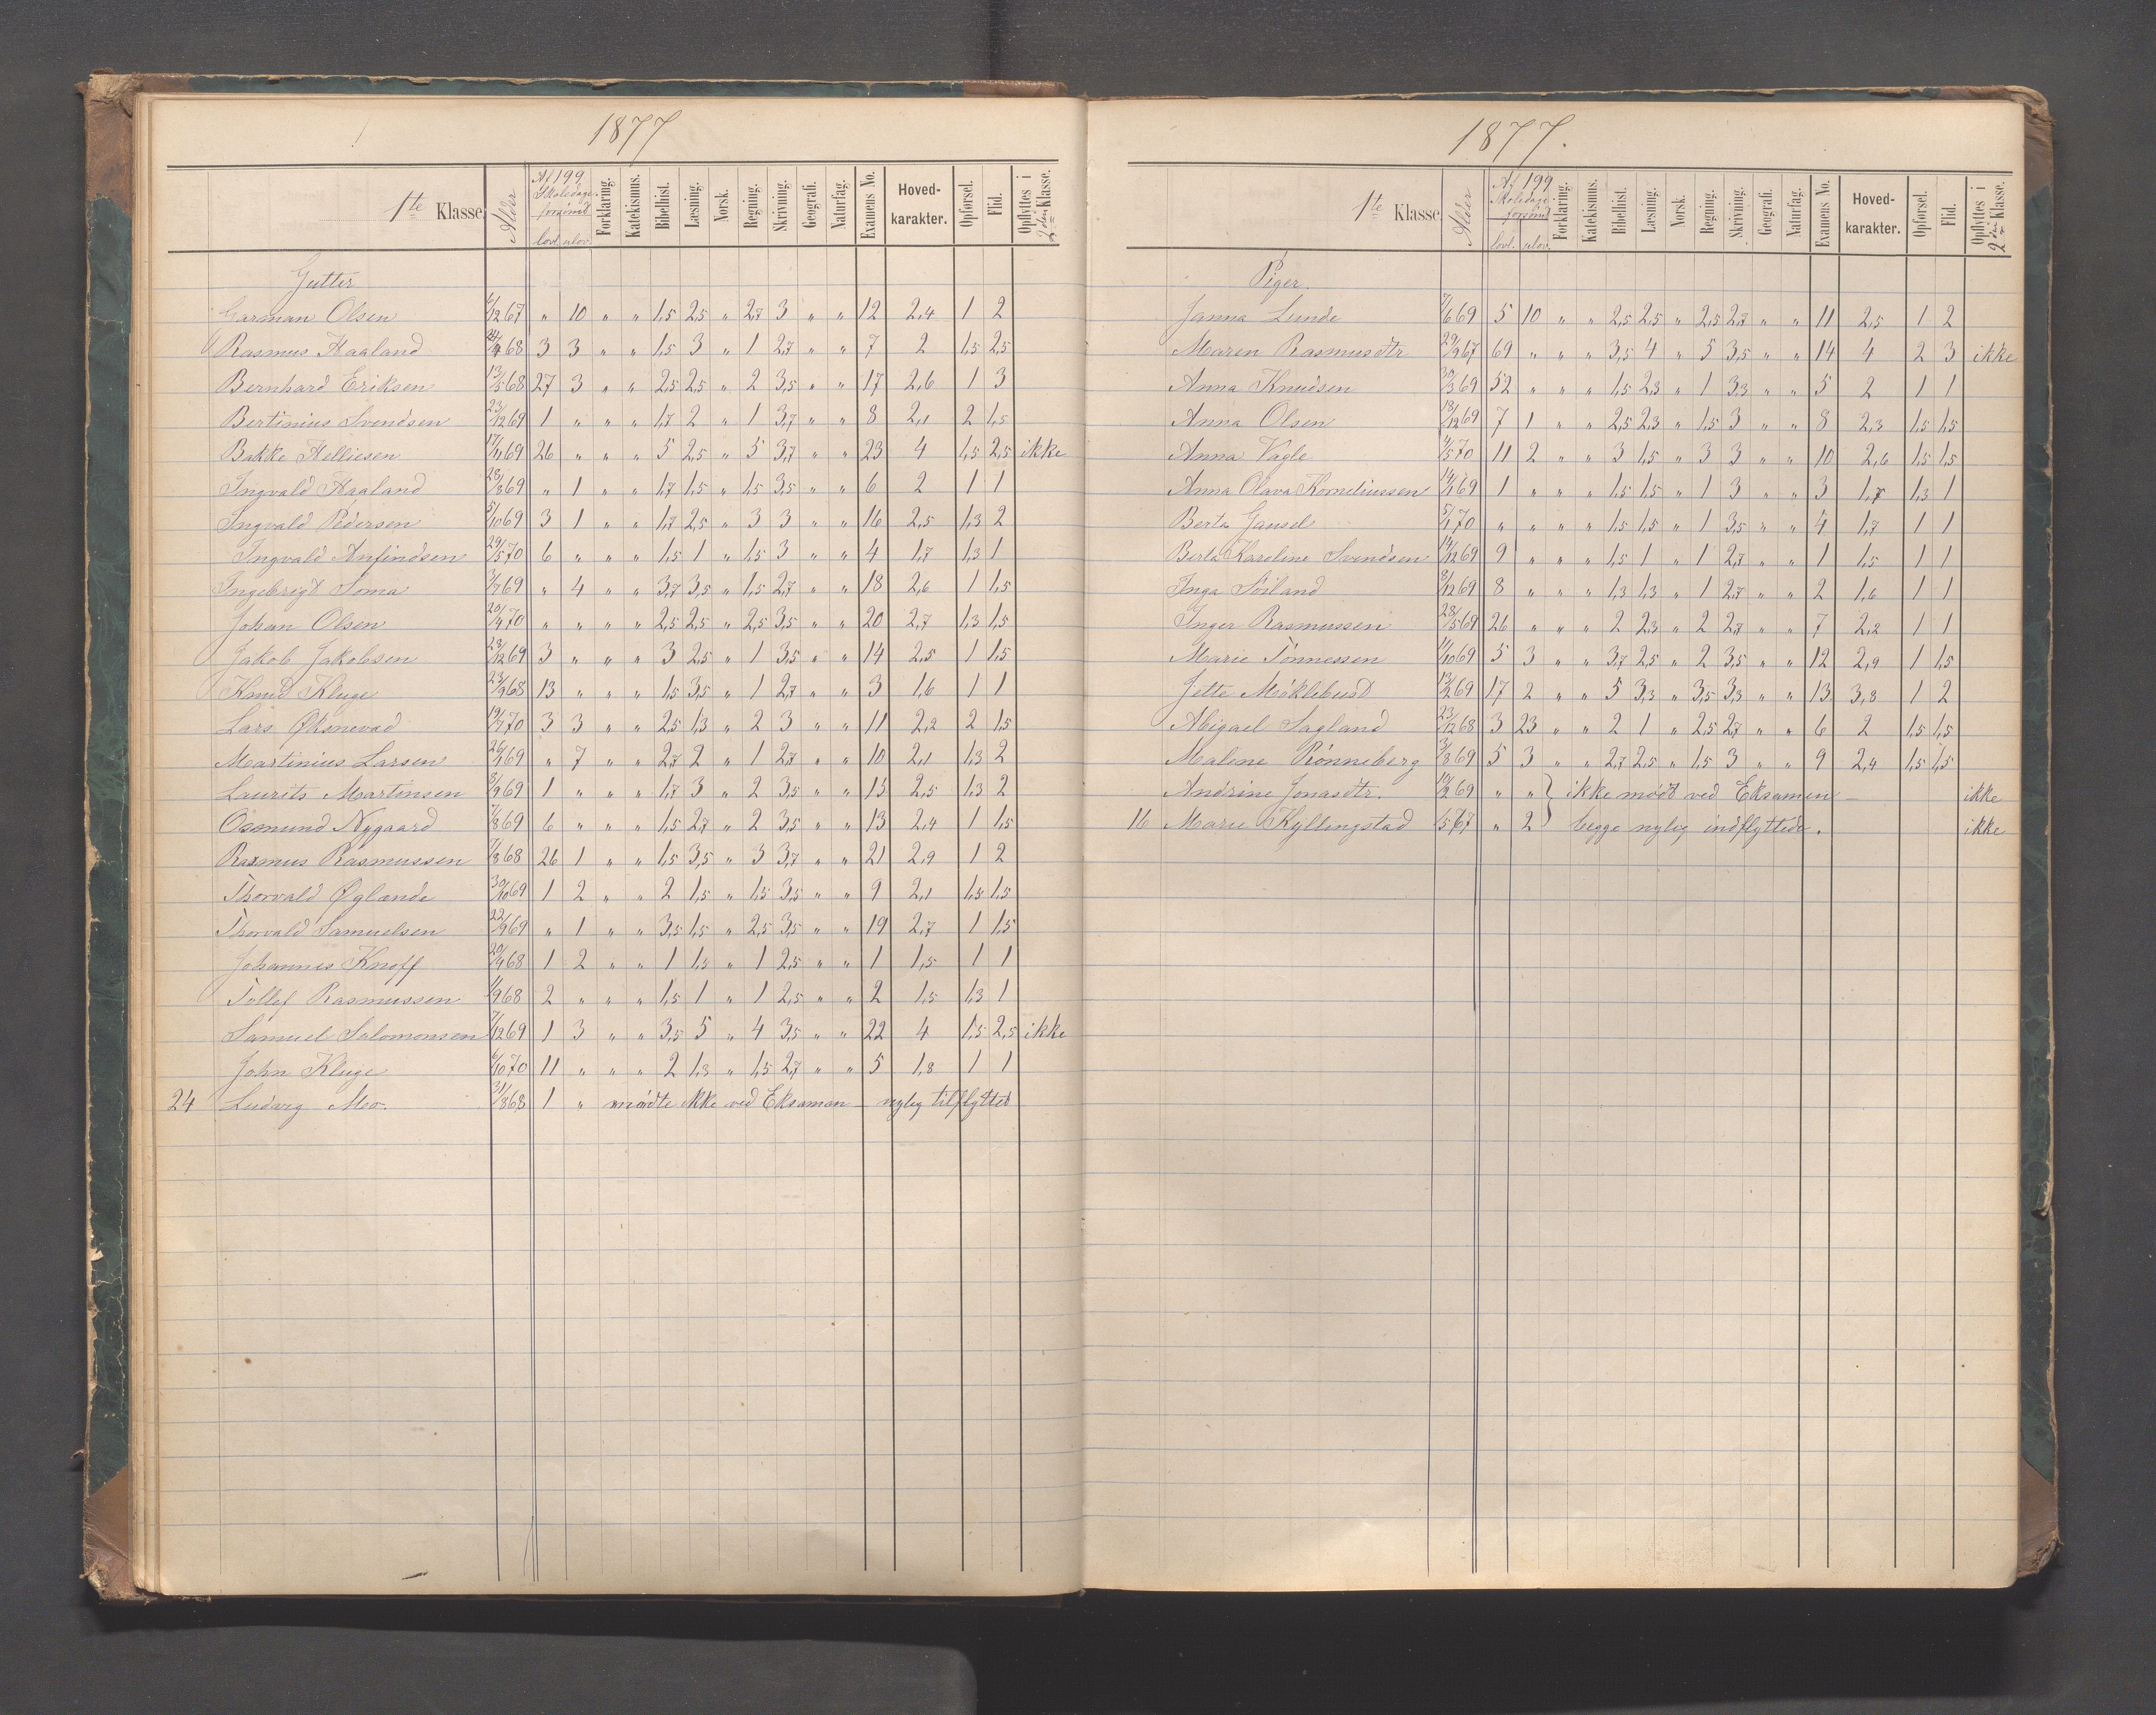 1877
1te Klasse. Alder Af 199 Skoledage forsømt lovl. ulov. Forklaring. Katekismus. Bibelhist. Læsning. Norsk. Regning. Skrivning. Geografi. Naturfag. Examens No. Hoved-karakter. Opførsel. Flid. Opflyttes i 2den Klasse.
Gutter
Garman Olsen 67 " 10 " " 1,5 2,5 " 2,7 3 " " 12 2,4 1 2
Rasmus Haaland 68 3 3 " " 1,5 3 " 1 2,7 " " 7 2 1,5 2,5
Bernhard Eriksen 13/5 68 27 3 " " 2,5 2,5 " 2 3,5 " " 17 2,6 1 3
Bertinius Svendsen 23/12 69 1 " " " 1,7 2 " 1 3,7 " " 8 2,1 2 1,5
Bakke Helliesen 17/11 69 26 " " " 5 2,5 " 5 3,7 " " 23 4 1,5 2,5 ikke
Ingvald Haaland 28/8 69 " 1 " " 1,7 1,5 " 1,5 3,5 " " 6 2 1 1
Ingvald Pedersen 5/10 69 3 1 " " 1,7 2,5 " 3 3 " " 16 2,5 1,3 2
Ingvald Anfindsen 29/5 70 6 " " " 1,5 1 " 1,5 3 " " 4 1,7 1,3 1
Ingebrigt Soma 3/7 69 " 4 " " 3,7 3,5 " 1,5 2,7 " " 18 2,6 1 1,5
Johan Olsen 20/4 70 " " " " 2,5 2,5 " 2,5 3,5 " " 20 2,7 1,3 1,5
Jakob Jakobsen 28/12 69 3 " " " 3 2,5 " 1 3,5 " " 14 2,5 1 1,5
Knud Kluge 23/9 68 13 " " " 1,5 3,5 " 1 2,7 " " 3 1,6 1 1
Lars Øksnevad 19/7 70 3 3 " " 2,5 1,3 " 2 3 " " 11 2,2 2 1,5
Martinius Larsen 26/1 69 " 7 " " 2,7 2 " 1 2,7 " " 10 2,1 1,3 2
Laurits Martinsen 8/9 69 1 " " " 1,7 3 " 2 3,5 " " 15 2,5 1,3 2
Osmund Nygaard 7/8 69 6 " " " 1,5 2,7 " 2 3,5 " " 13 2,4 1 1,5
Rasmus Rasmussen 7/8 68 26 1 " " 1,5 3,5 " 3 3,7 " " 21 2,9 1 2
Thorvald Øglænde 30/10 69 1 2 " " 2 1,5 " 1,5 3,5 " " 9 2,1 1,5 1,5
Thorvald Samuelsen 22/9 69 " 1 " " 3,5 1,5 " 2,5 3,5 " " 19 2,7 1 1,5
Johannes Knoff 20/9 68 1 2 " " 1 1,5 " 1 2,5 " " 1 1,5 1 1
Tollef Rasmussen 1/9 68 2 " " " 1,5 1 " 1 2,5 " " 2 1,5 1,3 1
Samuel Salomonsen 7/12 69 1 3 " " 3,5 5 " 4 3,5 " " 22 4 1,5 2,5 ikke
John Kluge 6/10 70 11 " " " 2 1,3 " 1,5 2,7 " " 5 1,8 1 1
24 Ludvig Mo. 31/8 68 1 " mødte ikke ved Eksamen — nylig tilflyttet
1877.
1te Klasse. Alder Af 199 Skoledage forsømt lovl. ulov. Forklaring. Katekismus. Bibelhist. Læsning. Norsk. Regning. Skrivning. Geografi. Naturfag. Examens No. Hoved-karakter. Opførsel. Flid. Opflyttes i 2den Klasse.
Piger.
Janna Lunde 7/6 69 5 10 " " 2,5 2,5 " 2,5 2,7 " " 11 2,5 1 2
Maren Rasmusdtr 29/9 67 69 " " " 3,5 4 " 5 3,5 " " 14 4 2 3 ikke
Anna Knudsen 30/3 69 52 " " " 1,5 2,3 " 1 3,3 " " 5 2 1 1
Anna Olsen 18/12 69 7 1 " " 2,5 2,3 " 1,5 3 " " 8 2,3 1,5 1,5
Anna Vagle 4/5 70 11 2 " " 3 1,5 " 3 3 " " 10 2,6 1,5 1,5
Anna Olava Korneliussen 14/1 69 1 " " " 1,5 1,5 " 1 3 " " 3 1,7 1,3 1
Berta Gausel 5/1 70 " " " " 1,5 1,5 " 1 3,5 " " 4 1,7 1 1
Berta Karoline Svendsen 14/12 69 9 " " " 1,5 1 " 1 2,7 " " 1 1,5 1 1
Inga Soiland 8/12 69 8 " " " 1,3 1,3 " 1 2,7 " " 2 1,6 1 1
Inger Rasmussen 28/5 69 26 " " " 2 2,3 " 2 2,7 " " 7 2,2 1 1
Marie Tønnessen 11/10 69 5 3 " " 3,7 2,5 " 2 3,5 " " 12 2,9 1 1,5
Jette Møklebust 13/2 69 17 2 " " 5 3,3 " 3,5 3,3 " " 13 3,8 1 2
Abigael Sagland 23/12 68 3 23 " " 2 1 " 2,5 2,7 " " 6 2 1,5 1,5
Malene Rønneberg 3/8 69 5 3 " " 2,7 2,5 " 1,5 3 " " 9 2,4 1,5 1,5
Andrine Jonasdtr. 19/2 69 " " } ikke mødt ved Eksamen — ikke
16 Marie Kyllingstad 67 " 2 } begge nylig indflyttede. ikke